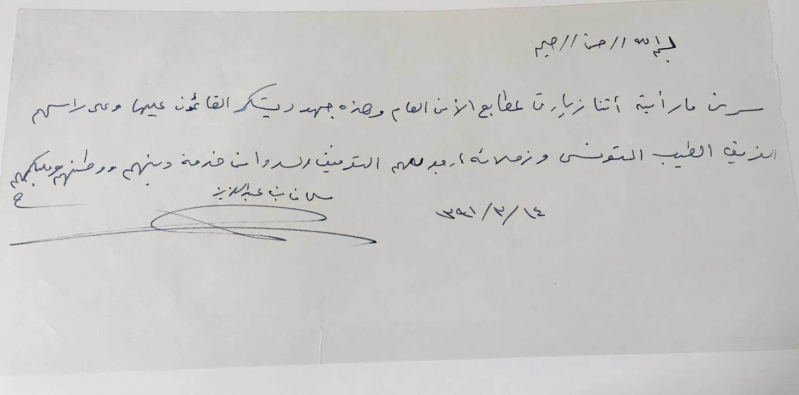 بسم الله الرحمن الرحيم
سرني ما رأيته أثناء زيارتي لمطابع الأمن العام وهذه جهود يشكر القائمون عليها وعلى رأسهم
الفريق الطيب التونسي وزملائه أرجو لهم التوفيق والسداد في خدمة دينهم ووطنهم ومليكهم
سلمان بن عبدالعزيز
١٣٩١/٣/١٤